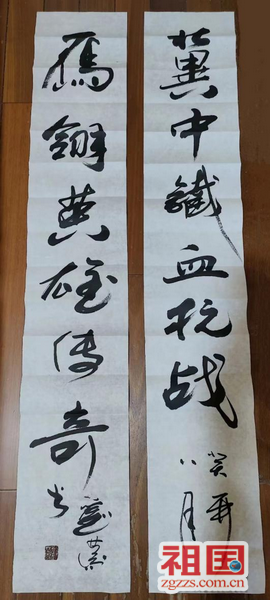 冀中鐵血抗战
癸卯
八月
鴈翎英雄传奇
书
祖国
zgzzs.com.cn